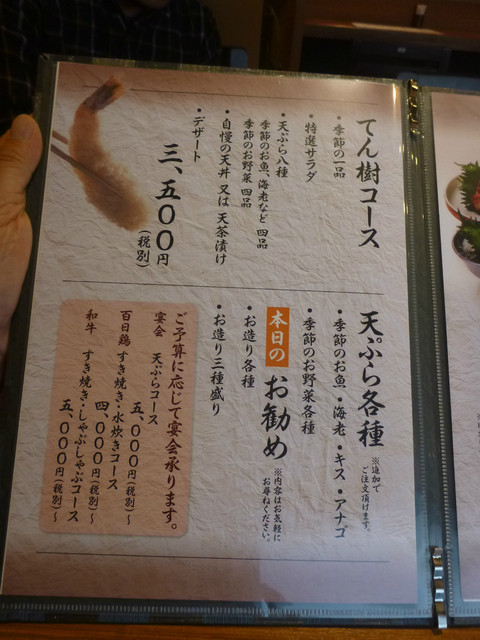 てん樹コース
・季節の一品
・特選サラダ
・天ぷら八種
季節のお魚、海老など 四品
季節のお野菜 四品
・自慢の天丼 又は 天茶漬け
・デザート
三、五〇〇円(税別)
天ぷら各種 ※追加でご注文頂けます。
・季節のお魚・海老・キス・アナゴ
・季節のお野菜各種
本日の お勧め ※内容はお気軽にお尋ねください。
・お造り各種
・お造り三種盛り
ご予算に応じて宴会承ります。
宴会 天ぷらコース
五、〇〇〇円(税別)〜
百日鶏 すき焼き・水炊きコース
四、〇〇〇円(税別)〜
和牛 すき焼き・しゃぶしゃぶコース
五、〇〇〇円(税別)〜